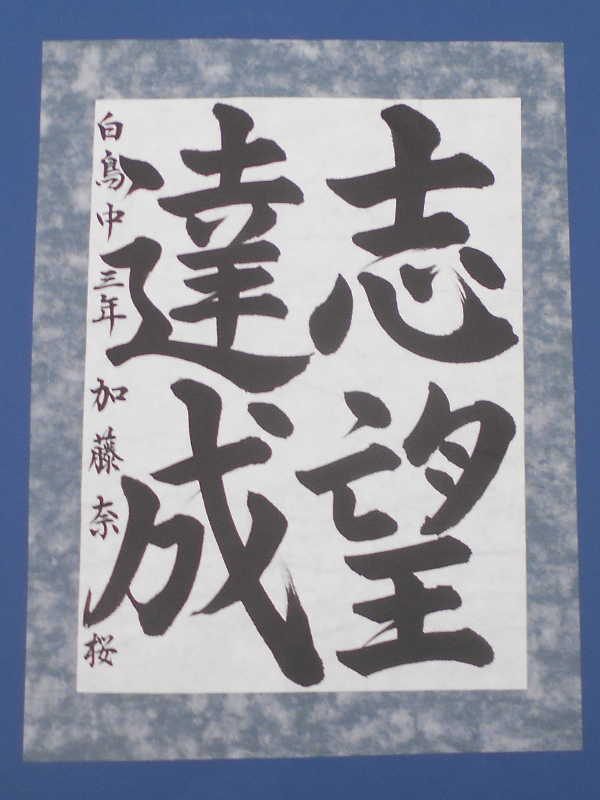 志望
達成
白鳥中三年 加藤奈桜